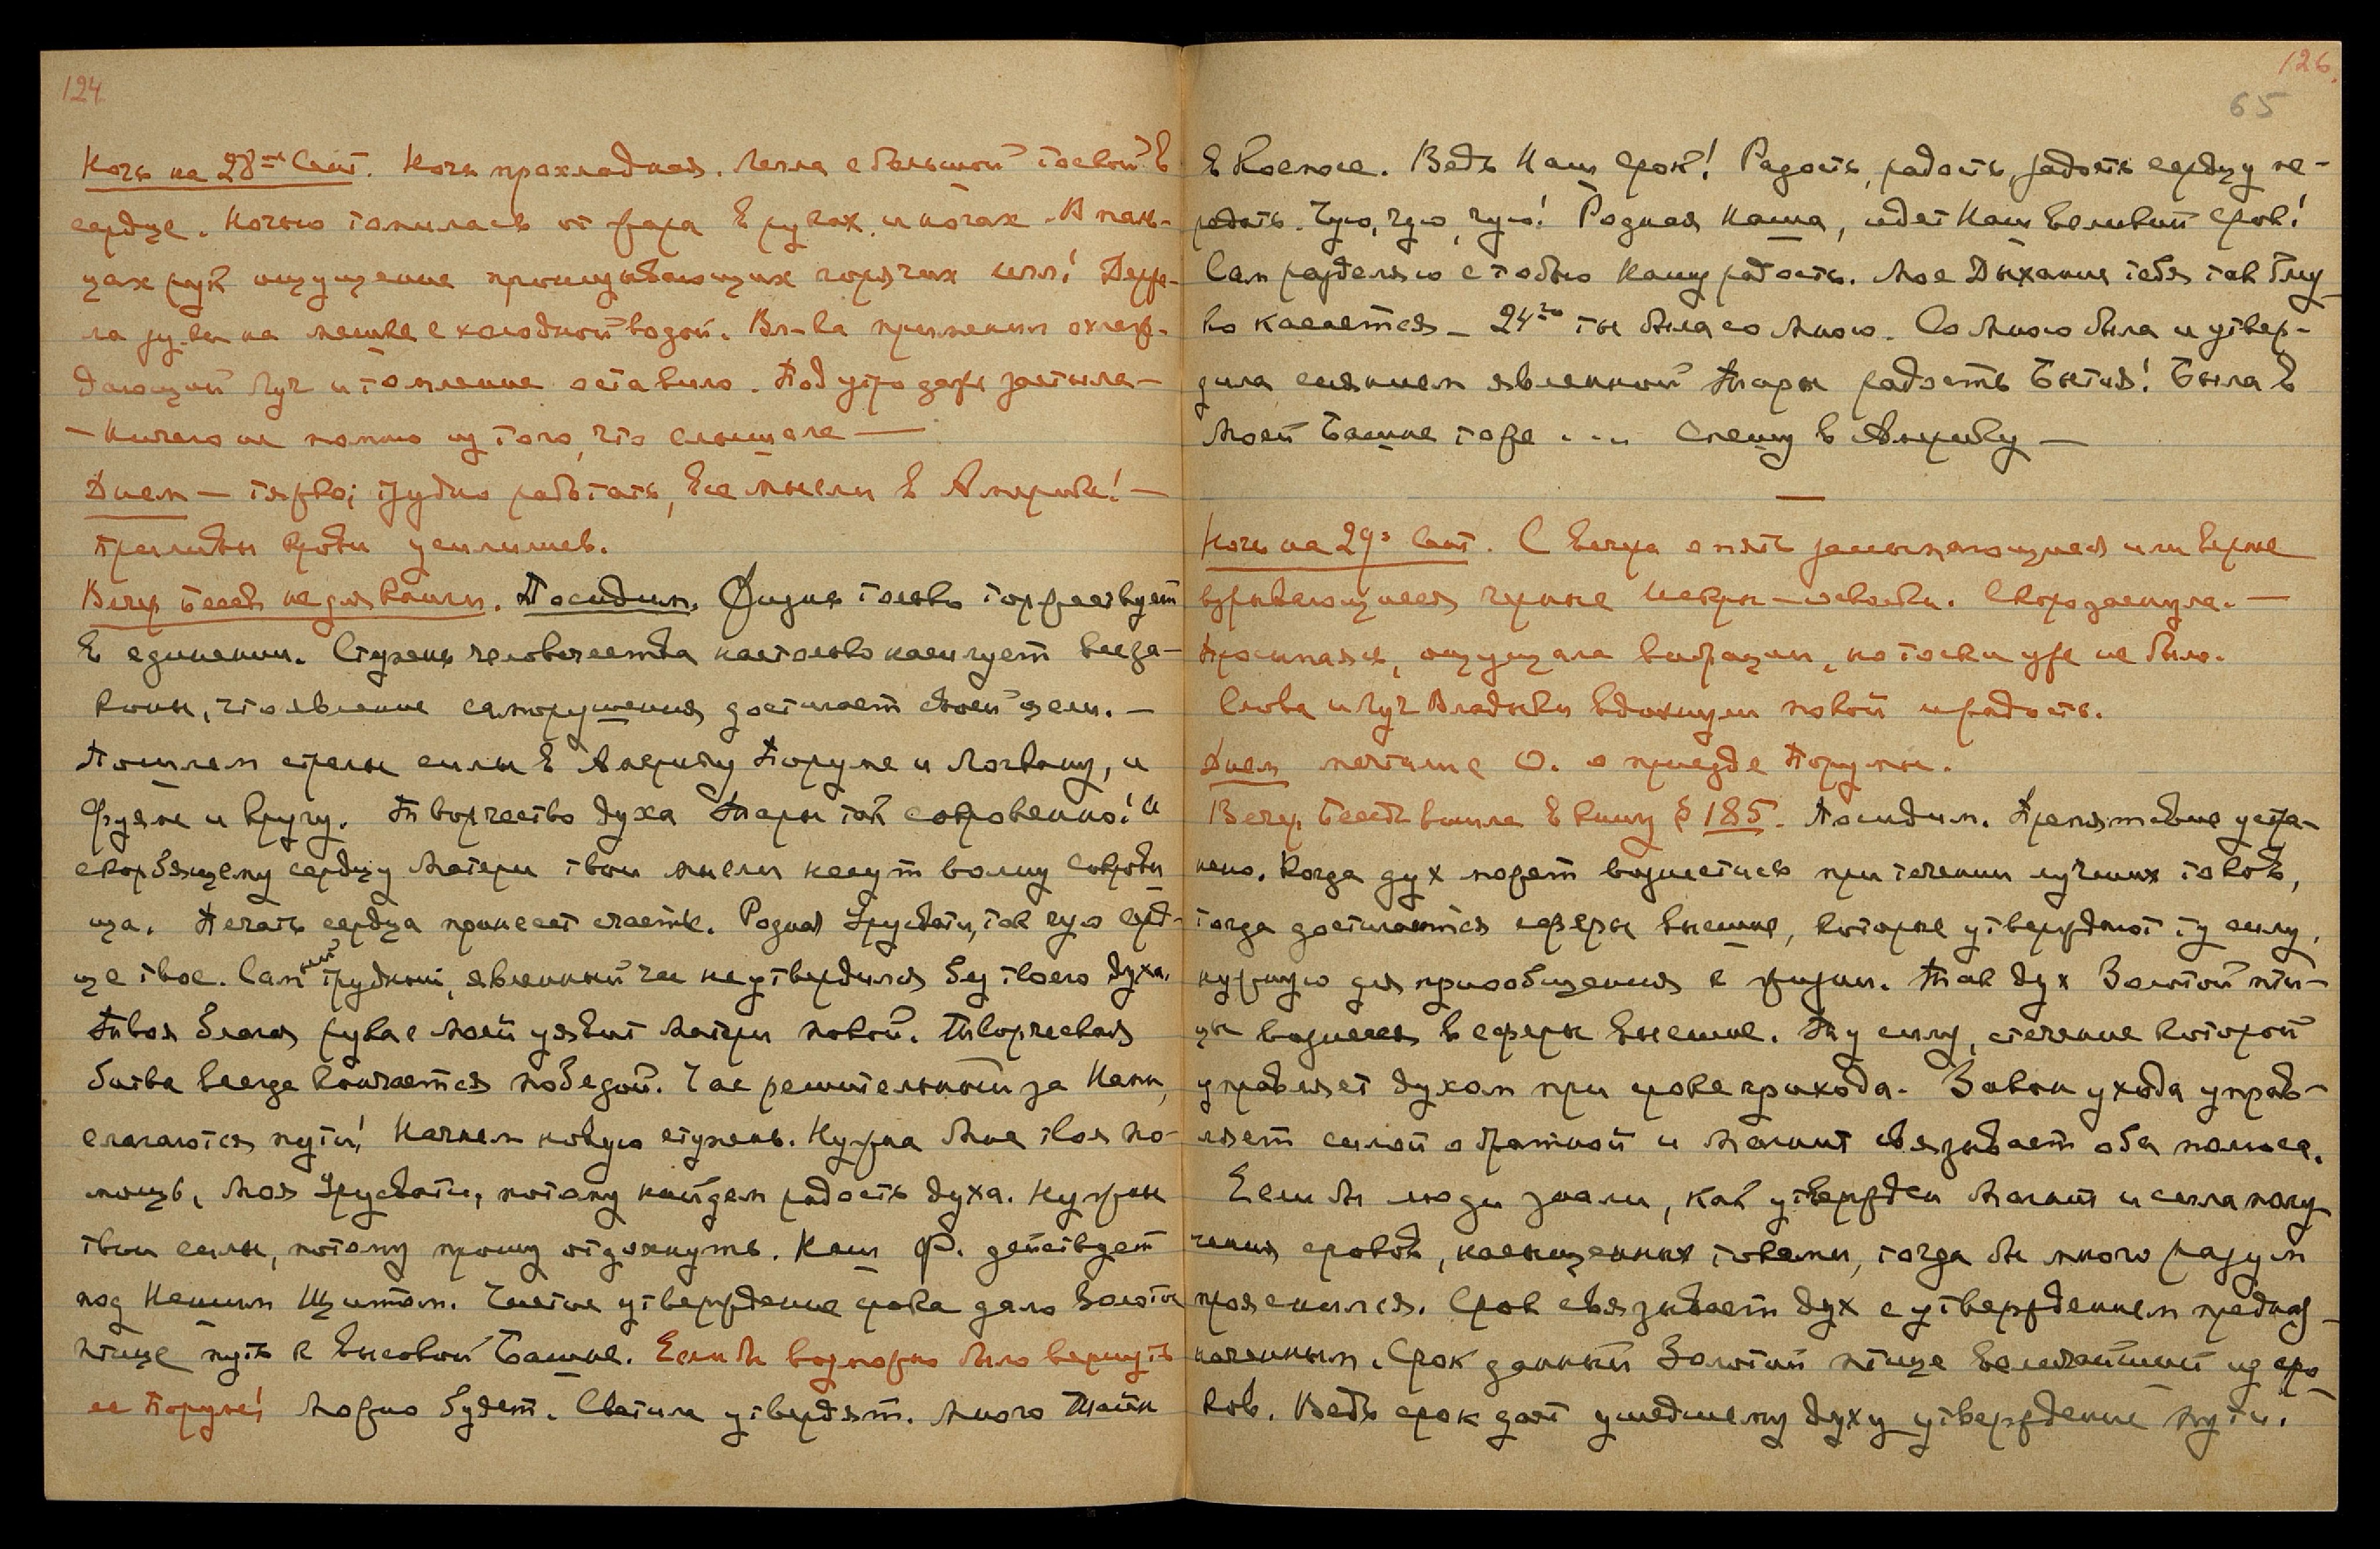 124.
Ночь на 28-ое Сент. Ночь прохладная. Легла с большой тоской в
сердце. Ночью томилась от жара в руках и ногах. В паль-
цах рук ощущение пронизывающих горячих игл! Держа-
ла руки на мешке с холодной водой. Вл-ка применил охлаж-
дающий Луч и томление оставило. Под утро даже застыла —
— Ничего не помню из того, что слышала —
Днем — тяжко; трудно работать, все мысли в Америке! —
Приливы крови усилились.
Вечер. Беседа не для книги. Посидим. Жизнь только торжествует
в единении. Ступень человечества настолько насилует все за-
коны, что явление саморушения достигает своей цели. —
Пошлем стрелы силы в Америку Поруме и Логвану, и
Фуяме и кругу. Творчество духа Тары так сокровенно! И
скорбящему сердцу Матери твои мысли несут волну сокрови
ща. Печать сердца принесет счастье. Родная Урусвати, так чую серд-
це твое. Сам трудный, явленный час не утвердился без твоего духа.
Твоя благая рука с Моей уявит Матери покой. Творческая
битва всегда кончается победой. Час решительный за Нами,
слагаются пути! Начнем новую ступень. Нужна Мне твоя по-
мощь, Моя Урусвати, потому найдем радость духа. Нужны
твои силы, потому прошу отдохнуть. Наш Ф. действует
под Нашим Щитом. Чистое утверждение срока дало Золотой
птице путь к высокой Башне. Если бы возможно было вернуть
ее Поруме! Можно будет. Светила утвердят. Много Тайн
126.
65
в Космосе. Ведь Наш Срок! Радость, радость, радость сердцу пе-
редать. Чую, чую, чую! Родная Наша, идет Наш великий Срок!
Сам разделяю с тобою Нашу радость. Мое Дыхание тебя так близ
ко касается — 24го ты была со Мною. Со Мною была и утвер-
дила сиянием явленной Тары радость Бытия! Была в
Моей Башне тоже .... Спешу в Америку —
—
Ночь на 29ое Сент. С вечера опять замыкающиеся или вернее
взрывающиеся черные искры — осколки. Скоро заснула. —
Просыпаясь, ощущала вибрации, но тоски уже не было.
Слова и Луч Владыки вдохнули покой и радость.
Днем письмо О. о приезде Порумы.
Вечер. Беседа вошла в книгу § 185. Посидим. Препятствие устра-
нено. Когда дух может вознестись при течении лучших токов,
тогда достигаются сферы высшие, которые утверждают ту силу,
нужную для приобщения к жизни. Так дух Золотой пти-
цы вознесся в сферы высшие. Ту силу, стечение которой
управляет духом при сроке прихода. Закон ухода управ-
ляет силой обратной и Магнит связывает оба полюса.
Если бы люди знали, как утвержден Магнит и сила полу
чения сроков, насыщенных токами, тогда бы много разум
прояснился. Срок связывает дух с утверждением предназ-
наченным. Срок данный Золотой птице величайший из сро
ков. Ведь срок дает ушедшему духу утверждение пути.